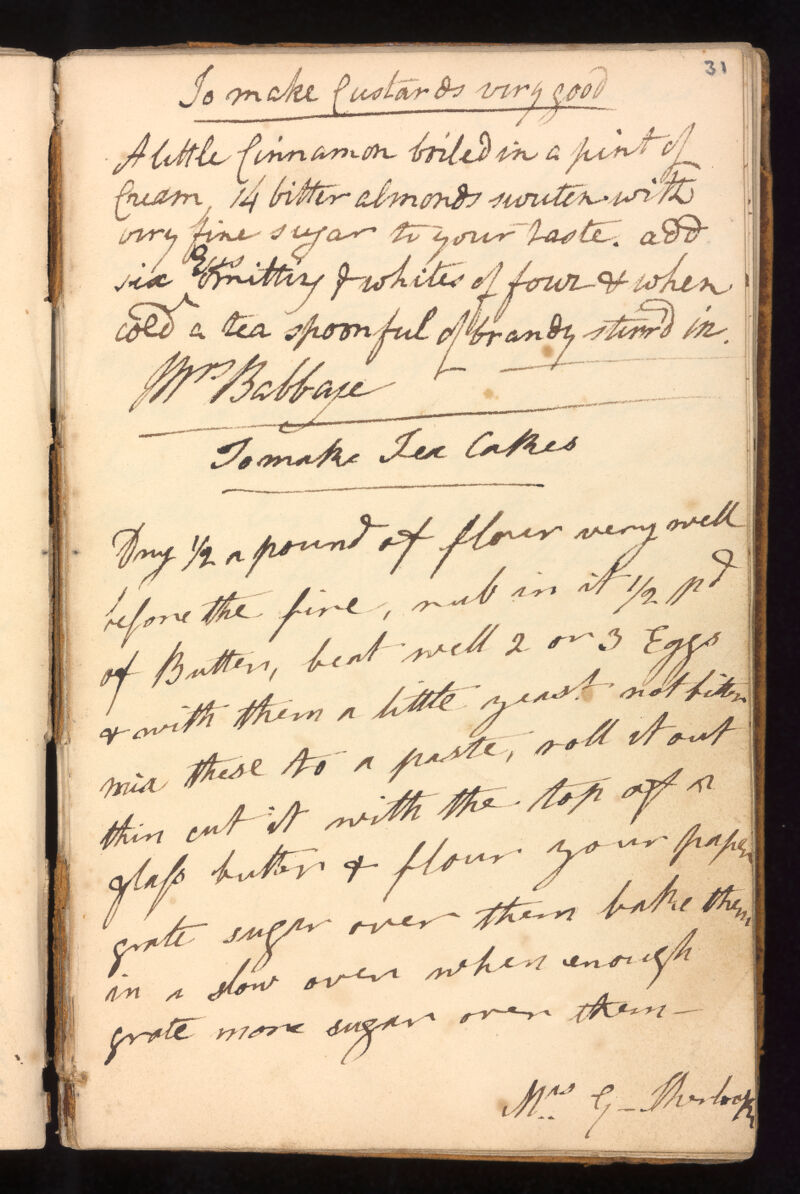 31
To make Custards very good
A little Cinnamon boiled in a pint of
Cream, 14 bitter almonds sweeten with
very fine sugar to your taste. add
six Eggs omitting y whites of four & when
cold a tea spoonful of brandy stirr'd in.
Mrs Babbage
To make Tea Cakes
Dry 1/2 a pound of flour very well
before the fire, rub in it 1/2 pd
of Butter, beat well 2 or 3 Eggs
& with them a little yeast not bitter
mix these to a paste, roll it out
thin cut it with the top of a
glass butter & flour your paper
grate sugar over them bake them
in a slow oven when enough
grate more sugar over them—
Mrs G— Sherlock